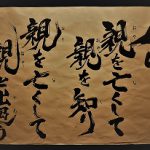 親を亡くして
親を知り
親を亡くして
親